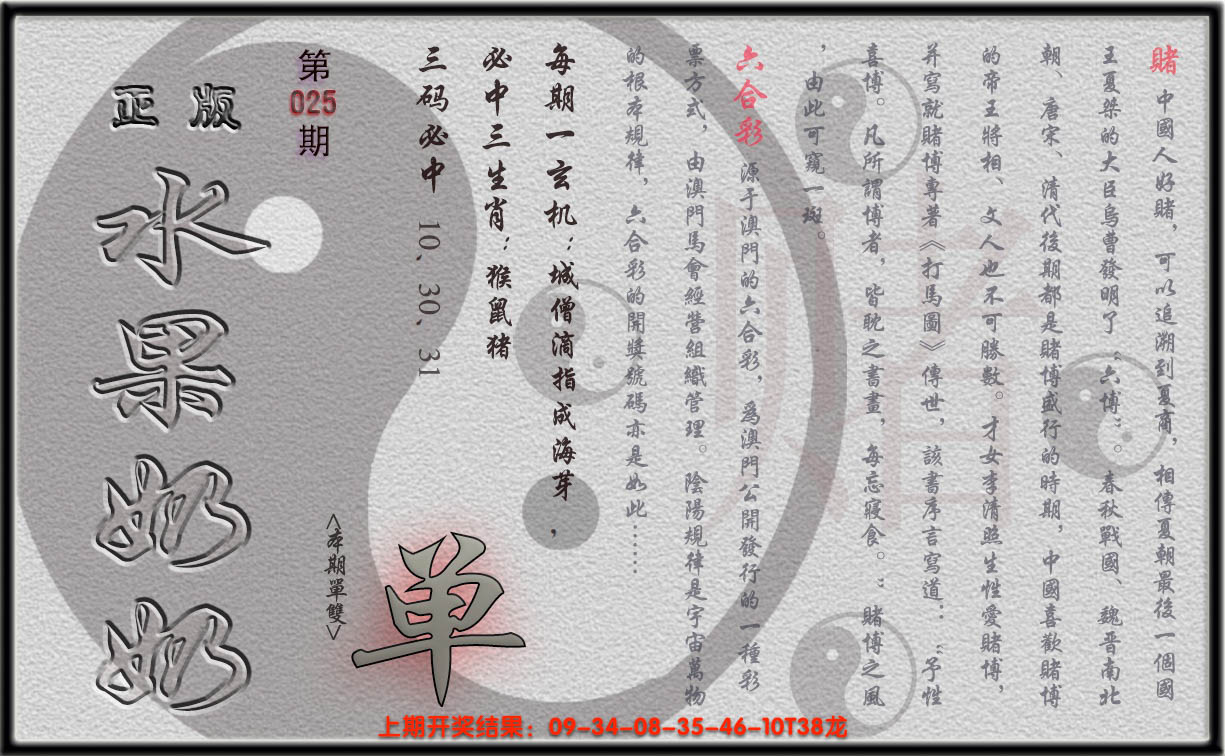 賭 中國人好賭，可以追溯到夏商，相傳夏朝最後一個國
王夏桀的大臣烏曹發明了“六博”。春秋戰國、魏晋南北
朝、唐宋、清代後期都是賭博盛行的時期，中國喜歡賭博
的帝王將相、文人也不可勝數。才女李清照生性愛賭博，
并寫就賭博專著《打馬圖》傳世，該書序言寫道：“予性
喜博。凡所謂博者，皆耽之書晝，每忘寢食。”賭博之風
，由此可窺一斑。
六合彩 源于澳門的六合彩，爲澳門公開發行的一種彩
票方式，由澳門馬會經營組織管理。陰陽規律是宇宙萬物
的根本規律，六合彩的開獎號碼亦是如此……
每期一玄机：城僧滴指成海芽，
必中三生肖：猴鼠猪
三码必中 10、30、31
<本期單雙>
单
第
025
期
正版
水果奶奶
上期开奖结果：09-34-08-35-46-10T38龙